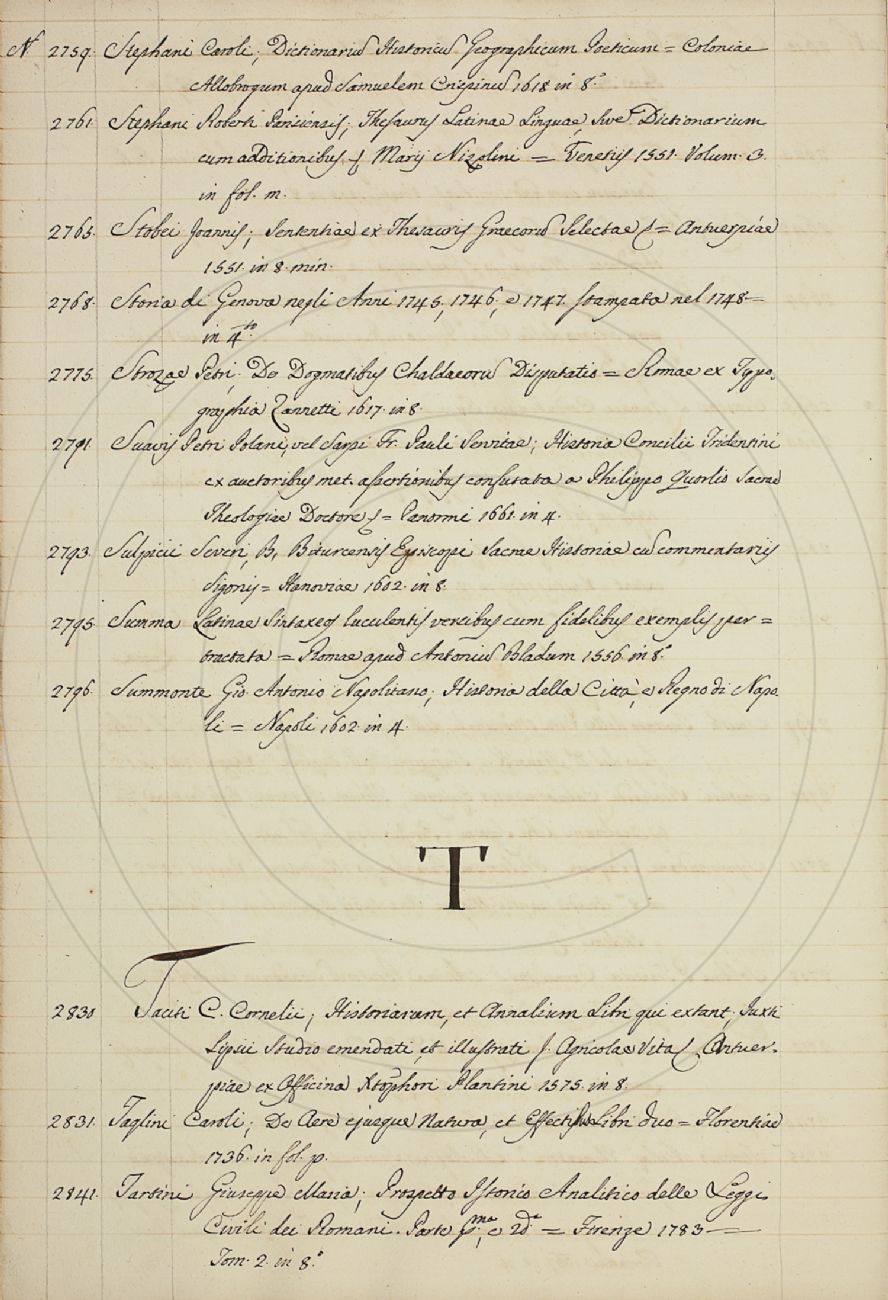 N. 2759. Stephani Caroli; Dictionariu Historicu Geographicum Poeticum = Coloniae
Allobrogum apud Samuelem Crispinu 1618 in 8.°
2761. Stephani Roberti Parisiensis; Thesaurus Latinae Linguae, sive Dictionarium
cum additionibus Marij Nizolini = Venetiis 1551. Volum. 3.
in fol. m.
2765. Stobei Joannis; Sententiae ex Thesauris Graecoru Selectae = Antuerpiae
1551. in 8. min.
2768. Storia di Genova negli Anni 1745, 1746, e 1747. stampata nel 1748 —
in 4.to
2775. Strozae Petri; De Dogmatibus Chaldaeoru Disputatio = Romae ex Typo-
graphia Zannetti 1617. in 8.
2791. Suavis Petri Polani, vel Sarpi Fr. Pauli Servitae; Historia Concilii Tridentini
ex auctoribus met. assertionibus confutata a Philippo Quorlio Sacrae
Theologiae Doctore = Panormi 1661. in 4.
2793. Sulpicii Severi, B. Biturcensis Episcopi Sacrae Historiae cu commentariis
Sigonis = Hanoviae 1602. in 8.
2795. Summa Latinae Sintaxeos luculentis versibus cum fidelibus exemplis per=
tractata = Romae apud Antoniu Bladum 1556. in 8.°
2796. Summonte Gio. Antonio Napolitano; Historia della Città, e Regno di Napo-
li = Napoli 1602. in 4.
T
2830 Taciti C. Cornelii; Historiarum, et Annalium Libri qui extant; Juxti
Lipsii Studio emendati, et illustrati J. Agricolae Vita Antuer-
piae ex Officina Xtophori Plantini 1575. in 8.
2831. Taglini Caroli; De Aere ejusque Natura, et Effectibus Libri duo = Florentiae
1736. in fol. p.
2841. Tartini Giuseppe Maria; Prospetto Istorico Analitico delle Leggi
Civili dei Romani. Parte p.ma, e 2d.a = Firenze 1783 —
Tom. 2. in 8.°